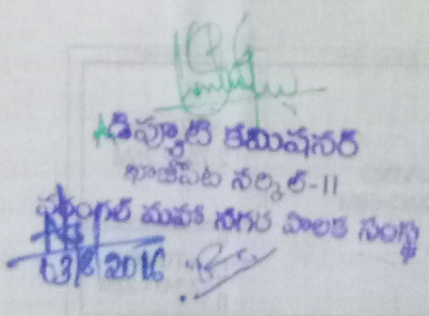 డిప్యూటి కమిషనర్
ఖాజీపేట సర్కిల్-II
వరంగల్ మహా నగర పాలక సంస్థ
03/8/2016